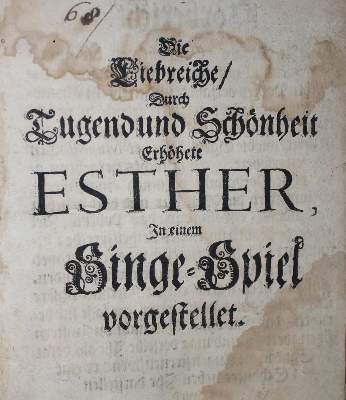 68/
Die
Liebreiche/
Durch
Tugend und Schönheit
Erhöhete
ESTHER,
In einem
Singe-Spiel
vorgestellet.